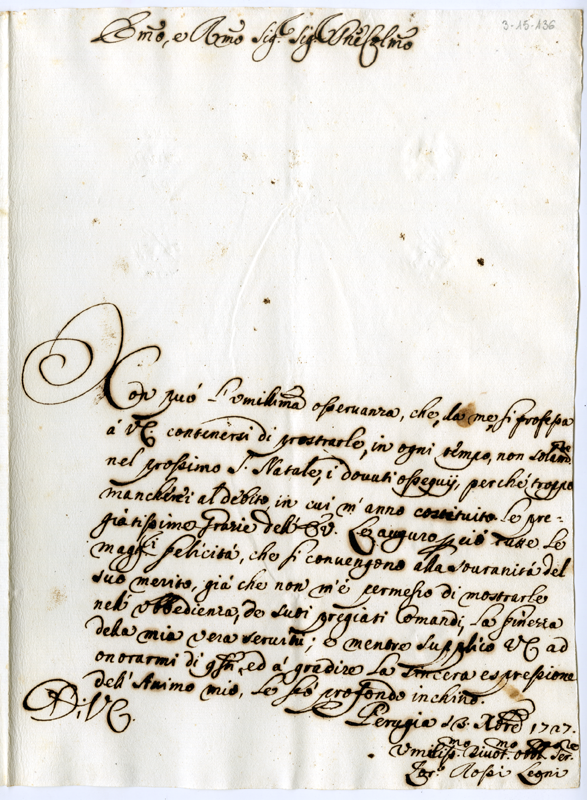 3-15-136
Em̃o, e Rm̃o Sig.r Sig.r P̃ne Col̃mo
Non può l'umilissima osservanza, che da me si professa
à V.E. contenersi di prostrarle, in ogni tempo, non solam.te
nel prossimo S. Natale, i dovuti ossequij, perché troppo
mancherei al debito, in cui m'anno costituito le pre-
giatissime Grazie dell'E.V. Le auguro p ciò tutte le
magg.ri felicità, che si convengono alla souranità del
suo merito, già che non m'è permesso di mostrarle
nell'obbedienza, de suoi pregiati Comandi, la finezza
dela mia vera servitù; e mentre supplico V.E. ad
onorarmi di q.sti, ed à gradire la sincera espressione
dell'Animo mio, le fò profondo inchino.
Di V.E.
Perugia 13. Xbre 1727.
Umiliss.mo Divot.mo Obbl. Ser.
Rossi Leoni